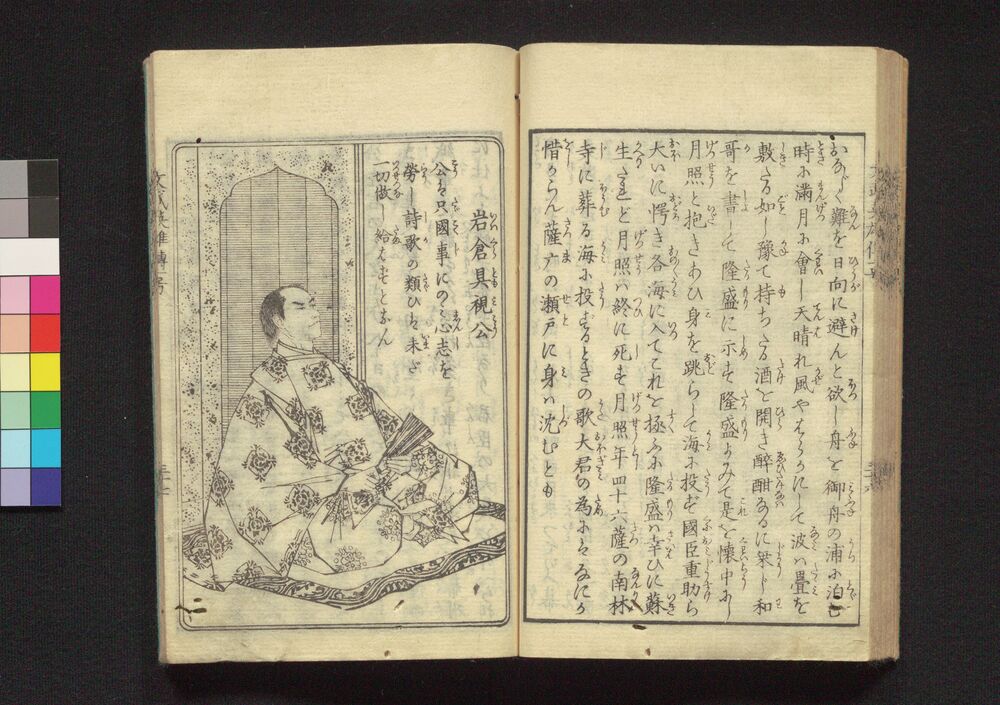 おなじく難を日向に避んと欲し舟を御舟の浦に泊む
時に滿月に會し天晴れ風やはらかにして波ハ疊を
敷たる如し豫て持ちたる酒を開き醉酣なるに栞じ和
哥を書して隆盛に示す隆盛よみて是を懷中にし
月照と抱きあひ身を跳らして海に投ず國臣重助ら
大いに愕き各海に入てこれを極ふに隆盛ハ幸ひに蘇
生すれど月照ハ終に死す月照年四十六薩の南林
寺に葬る海に投ずるときの歌大君の為にはなにか
惜からん薩广の瀬戸に身ハ沈むとも
岩倉具視公
公は只國事にのミ心志を
勞し詩歌の類ひは未だ
一切做し給はずとなん